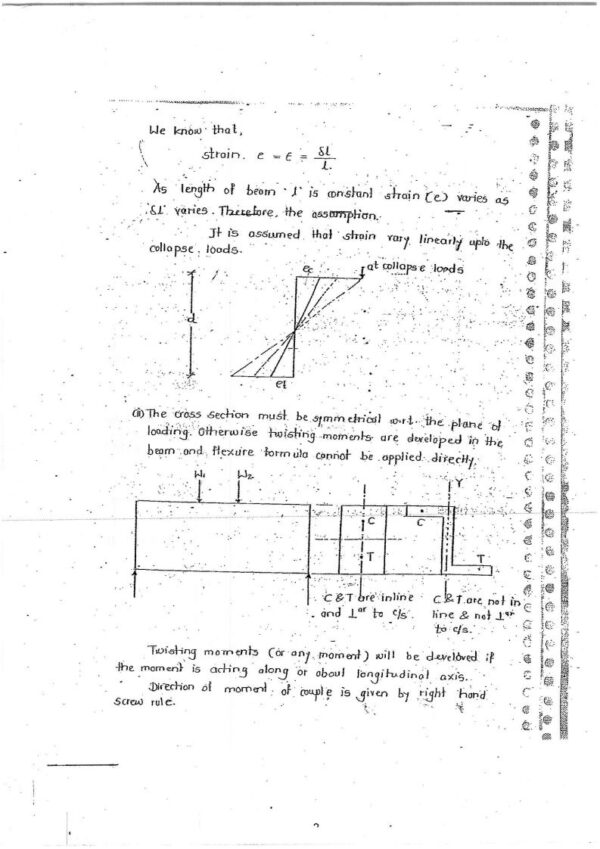 We know that,
strain. e = ϵ = δl / l.
As length of beam 'l' is constant strain (e) varies as
δl varies. Therefore, the assumption.
It is assumed that strain vary linearly upto the
collapse loads.
ec
at collapse loads
d
et
(ii) The cross section must be symmetrical w.r.t. the plane of
loading. Otherwise twisting moments are developed in the
beam and flexure formula cannot be applied directly.
W1 W2 Y
C C
T T
C & T are inline
and ⊥ar to c/s.
C & T are not in
line & not ⊥ar
to c/s.
Twisting moments (or any moment) will be develoved if
the moment is acting along or about longitudinal axis.
Direction of moment of couple is given by right hand
screw rule.